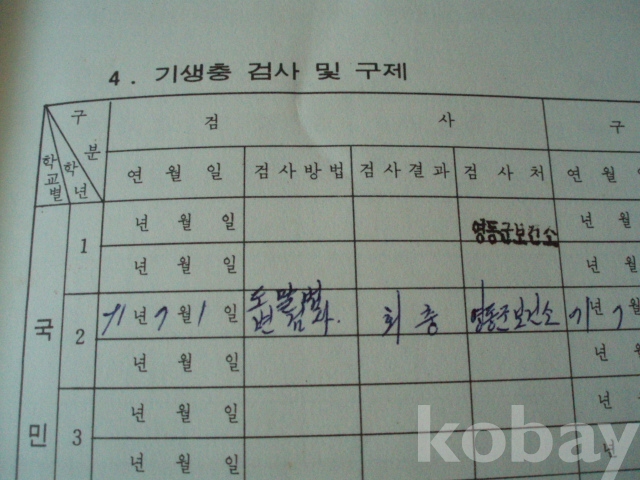 4. 기생충 검사 및 구제
구분 검사 구
학교별 학년 연월일 검사방법 검사결과 검사처 연월
국민
1 년 월 일 영동군보건소 년 월
년 월 일 년 월
2 71년 7월 1일 도말법 변검사. 회충 영동군보건소 71년 7월
년 월 일 년 월
3 년 월 일 년 월
년 월 일 년
kobay